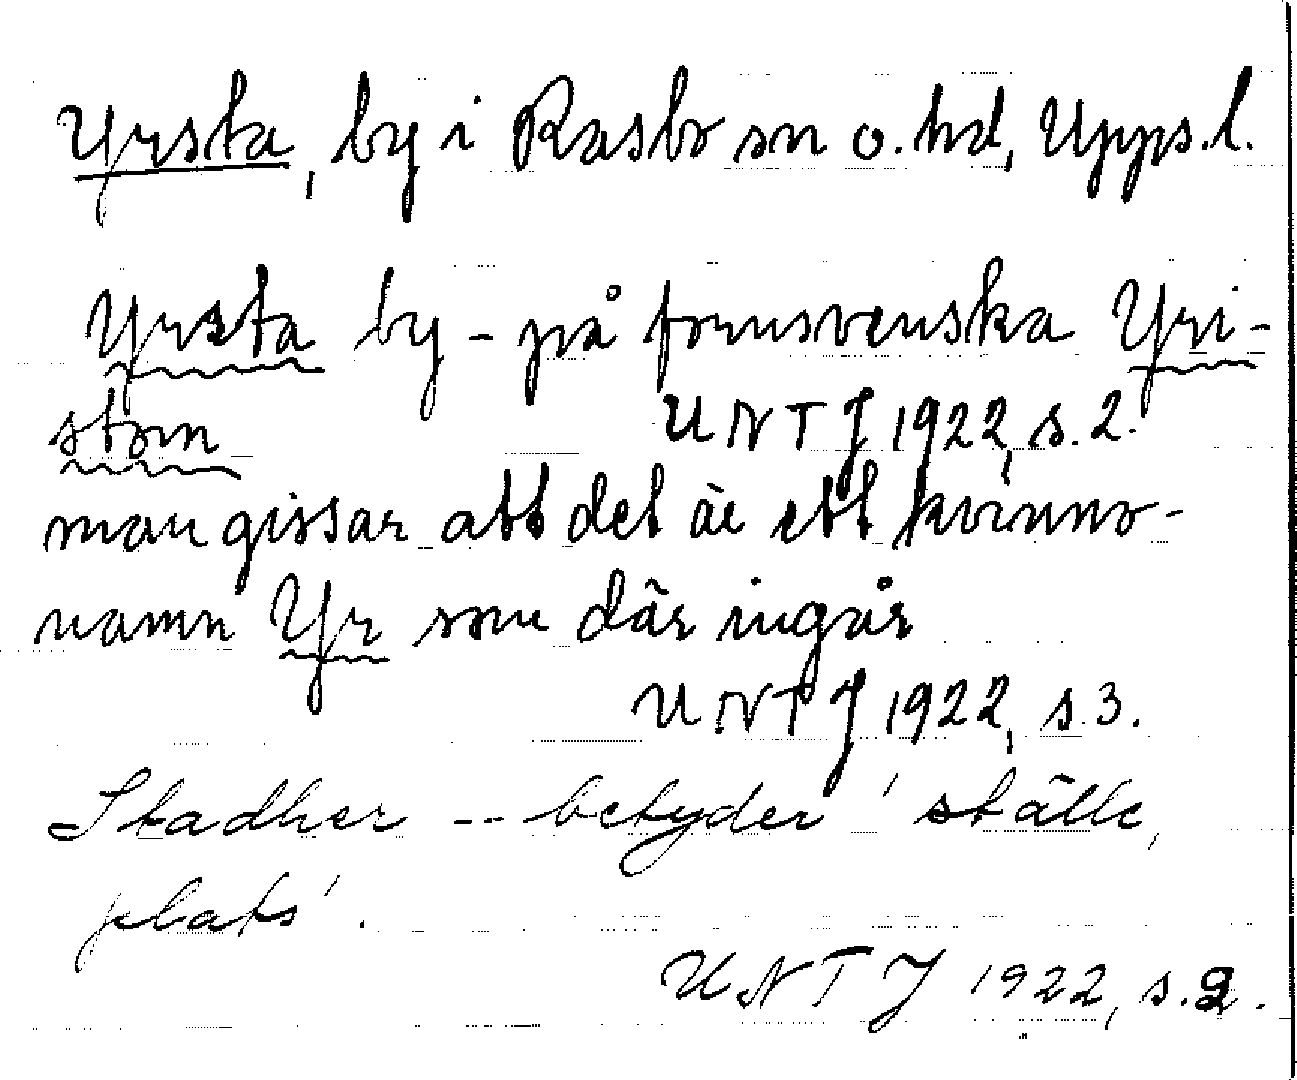 Yrsta, by i Rasbo sn o. hd, Upps.l.
Yrsta by - på fornsvenska Yri-
stom UNTJ 1922, s. 2.
man gissar att det är ett kvinno-
namn Yr som där ingår
UNTJ 1922, s. 3.
Stadher -- betyder 'ställe,
plats'.
UNTJ 1922, s. 2.